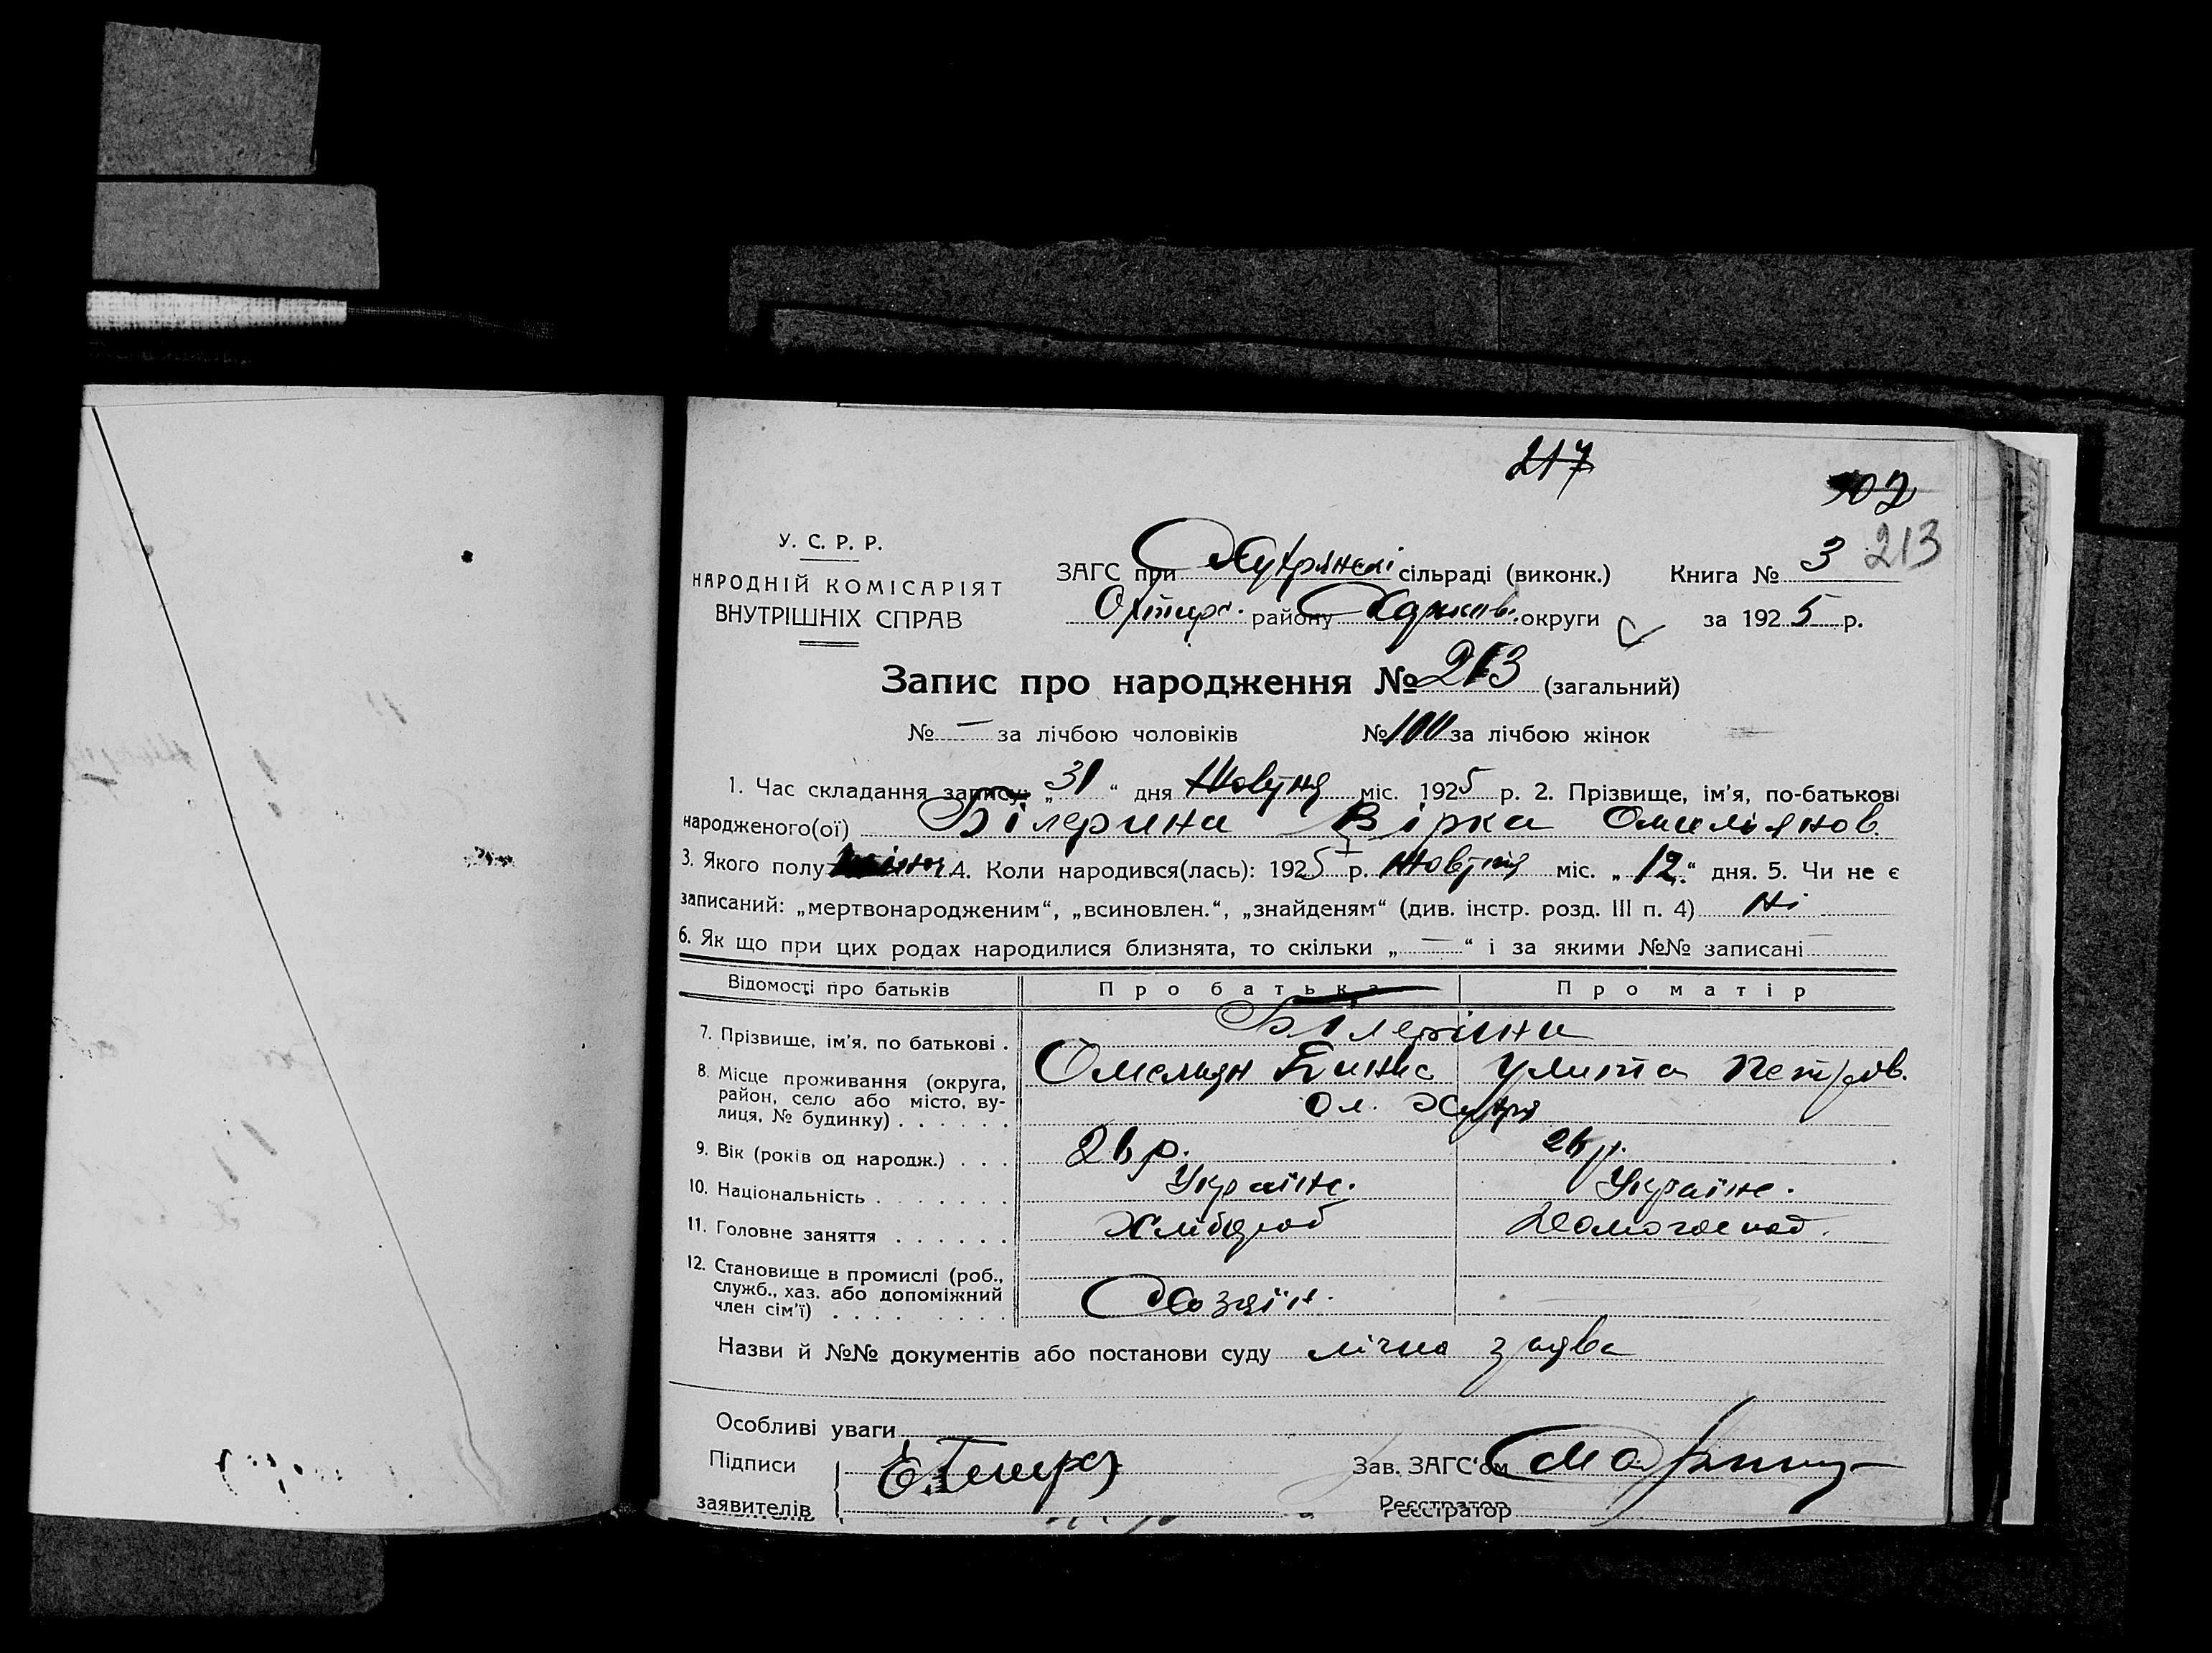 217
102
213
У. С. Р. Р.
НАРОДНІЙ КОМІСАРІЯТ
ВНУТРІШНІХ СПРАВ
ЗАГС при Хутрянскі сільраді (виконк.) Книга № 3
Охтир. району Харків. округи за 1925 р.
Запис про народження № 213 (загальний)
№ — за лічбою чоловіків № за лічбою жінок
1. Час складання запису: „31“ дня Жовтня міс. 1925 р. 2. Прізвище, ім'я, по-батькові
народженого(ої) Білерина Вірка Омельянов.
3. Якого полу жіноч. 4. Коли народився(лась): 1925 р. Жовтня міс. „12“ дня. 5. Чи не є
записаний: „мертвонародженим“, „всиновлен.“, „знайденям“ (див. інстр. розд. III п. 4) Ні
6. Як що при цих родах народилися близнята, то скільки „—“ і за якими №№ записані —
Відомості про батьків Про батька Про матір
7. Прізвище, ім'я, по батькові . Білеріни
Омелян Улита Петров.
8. Місце проживання (округа,
район, село або місто, ву-
лиця, № будинку) . . . . . .
9. Вік (років од народж.) . . . 26 р. 26 р.
10. Національність . . . . . . . Україне. Україне.
11. Головне заняття . . . . . . Хлібороб Домогоспод.
12. Становище в промислі (роб.,
служб., хаз. або допоміжний
член сім'ї) . . . . . . . . . Хозяїн. —
Назви й №№ документів або постанови суду лічна заява
Особливі уваги
Підписи
Зав. ЗАГС'ом
заявителів
Реєстратор